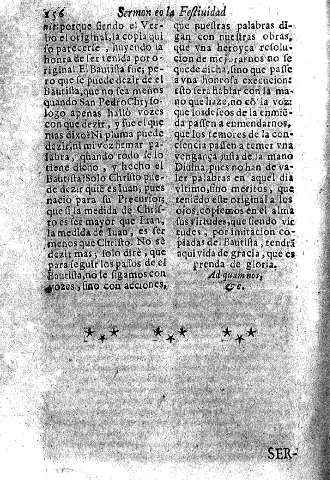 156 Sermon en la Festividad
nir, porque siendo el Ver-
bo el original, la copia quiso
so parecerse, huyendo la
honra de ser tenida por o-
riginal. El Bautista fue; pe-
ro que se puede dezir de el
Bautista, que no sea menos
quando San Pedro Chryso-
logo apenas halló vozes
con que dezir, y fue el que
mas dixo? Ni pluma puede
dezir, ni mi voz firmar pa-
labra, quando todo se lo
tiene dicho, y hecho el
Bautista. Solo Christo pue-
de dezir quié es Iuan, pues
nació para su Precursor;
que si la medida de Chris-
to es ser mayor que Iuan,
la medida de Iuan, es ser
menos que Christo. No sé
dezir mas; solo diré, que
para seguir los passos de el
Bautista, no le sigamos con
vozes, sino con acciones,
que nuestras palabras di-
gan con nuestras obras,
que vna heroyca resolu-
cion de mejorarnos no se
quede dicha, sino que passe
a vna honrosa execucion:
esto será hablar con la ma-
no que haze, no có la voz:
que los deseos de la enmié-
da passen a enmendarnos,
que los temores de la con-
ciencia passen a temer vna
vengança justa de la mano
Diuina, pues no han de va-
ler palabras en aquel dia
vltimo, sino meritos, que
teniedo este original a los
ojos, copiemos en el alma
sus virtudes, que siendo vir-
tudes, por imitacion co-
piadas de Bautista, tendrá
aqui vida de gracia, que es
prenda de gloria.
Ad quam nos,
&c.
SER-